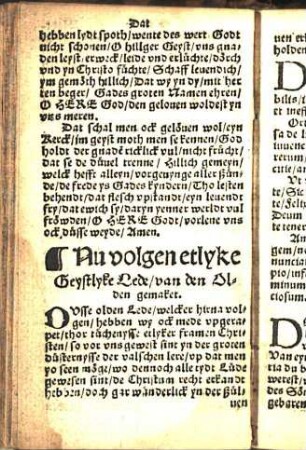 Dat
hebben lydt spoth/went des wert Godt
nicht schonen/O hillger Geyst/vns gna⸗
den leyst/erweck/leide vnd erlüchte/dörch
vnd yn Christo füchte/Schaff leuendich/
ym gemöth hillich/Dat wy yn dy/mit her
ten beger/Gades groten Namen ehren/
O HERE God/den gelouen woldest yn
vns meren.
Dat schal men ock gelöuen wol/eyn
Kerck/im geyst moth men se kennen/God
holdet der gnade ricklick vul/nicht füchti/
dat se de düuel trenne/Hillich gemeyn/
welck hefft alleyn/vorgeuynge aller Sün⸗
de/de frede ys Gades kyndern/Tho lesten
behendt/dat flesch vpstandt/eyn leuendt
fry/dat ewich sy/daryn yenner werldt vul
fröwden/O HERE Godt/vorlene vns
ock düsse weyde/Amen.
¶ Nu volgen etlyke
Geystlyke Lede/van den Ol⸗
den gemaket.
DVsse olden Lede/welcker hirna vol⸗
gen/hebben wy ock mede vpgera⸗
pet/thor tüchenysse etlyker framen Chri⸗
sten/so vor vns gewest sint yn der groten
düsternysse der valschen lere/vp dat men
yo seen möge/wo dennoch alle tydt Lüde
gewesen sint/de Christum recht erkandt
hebben/doch gar wünderlick yn der sül⸗
uen